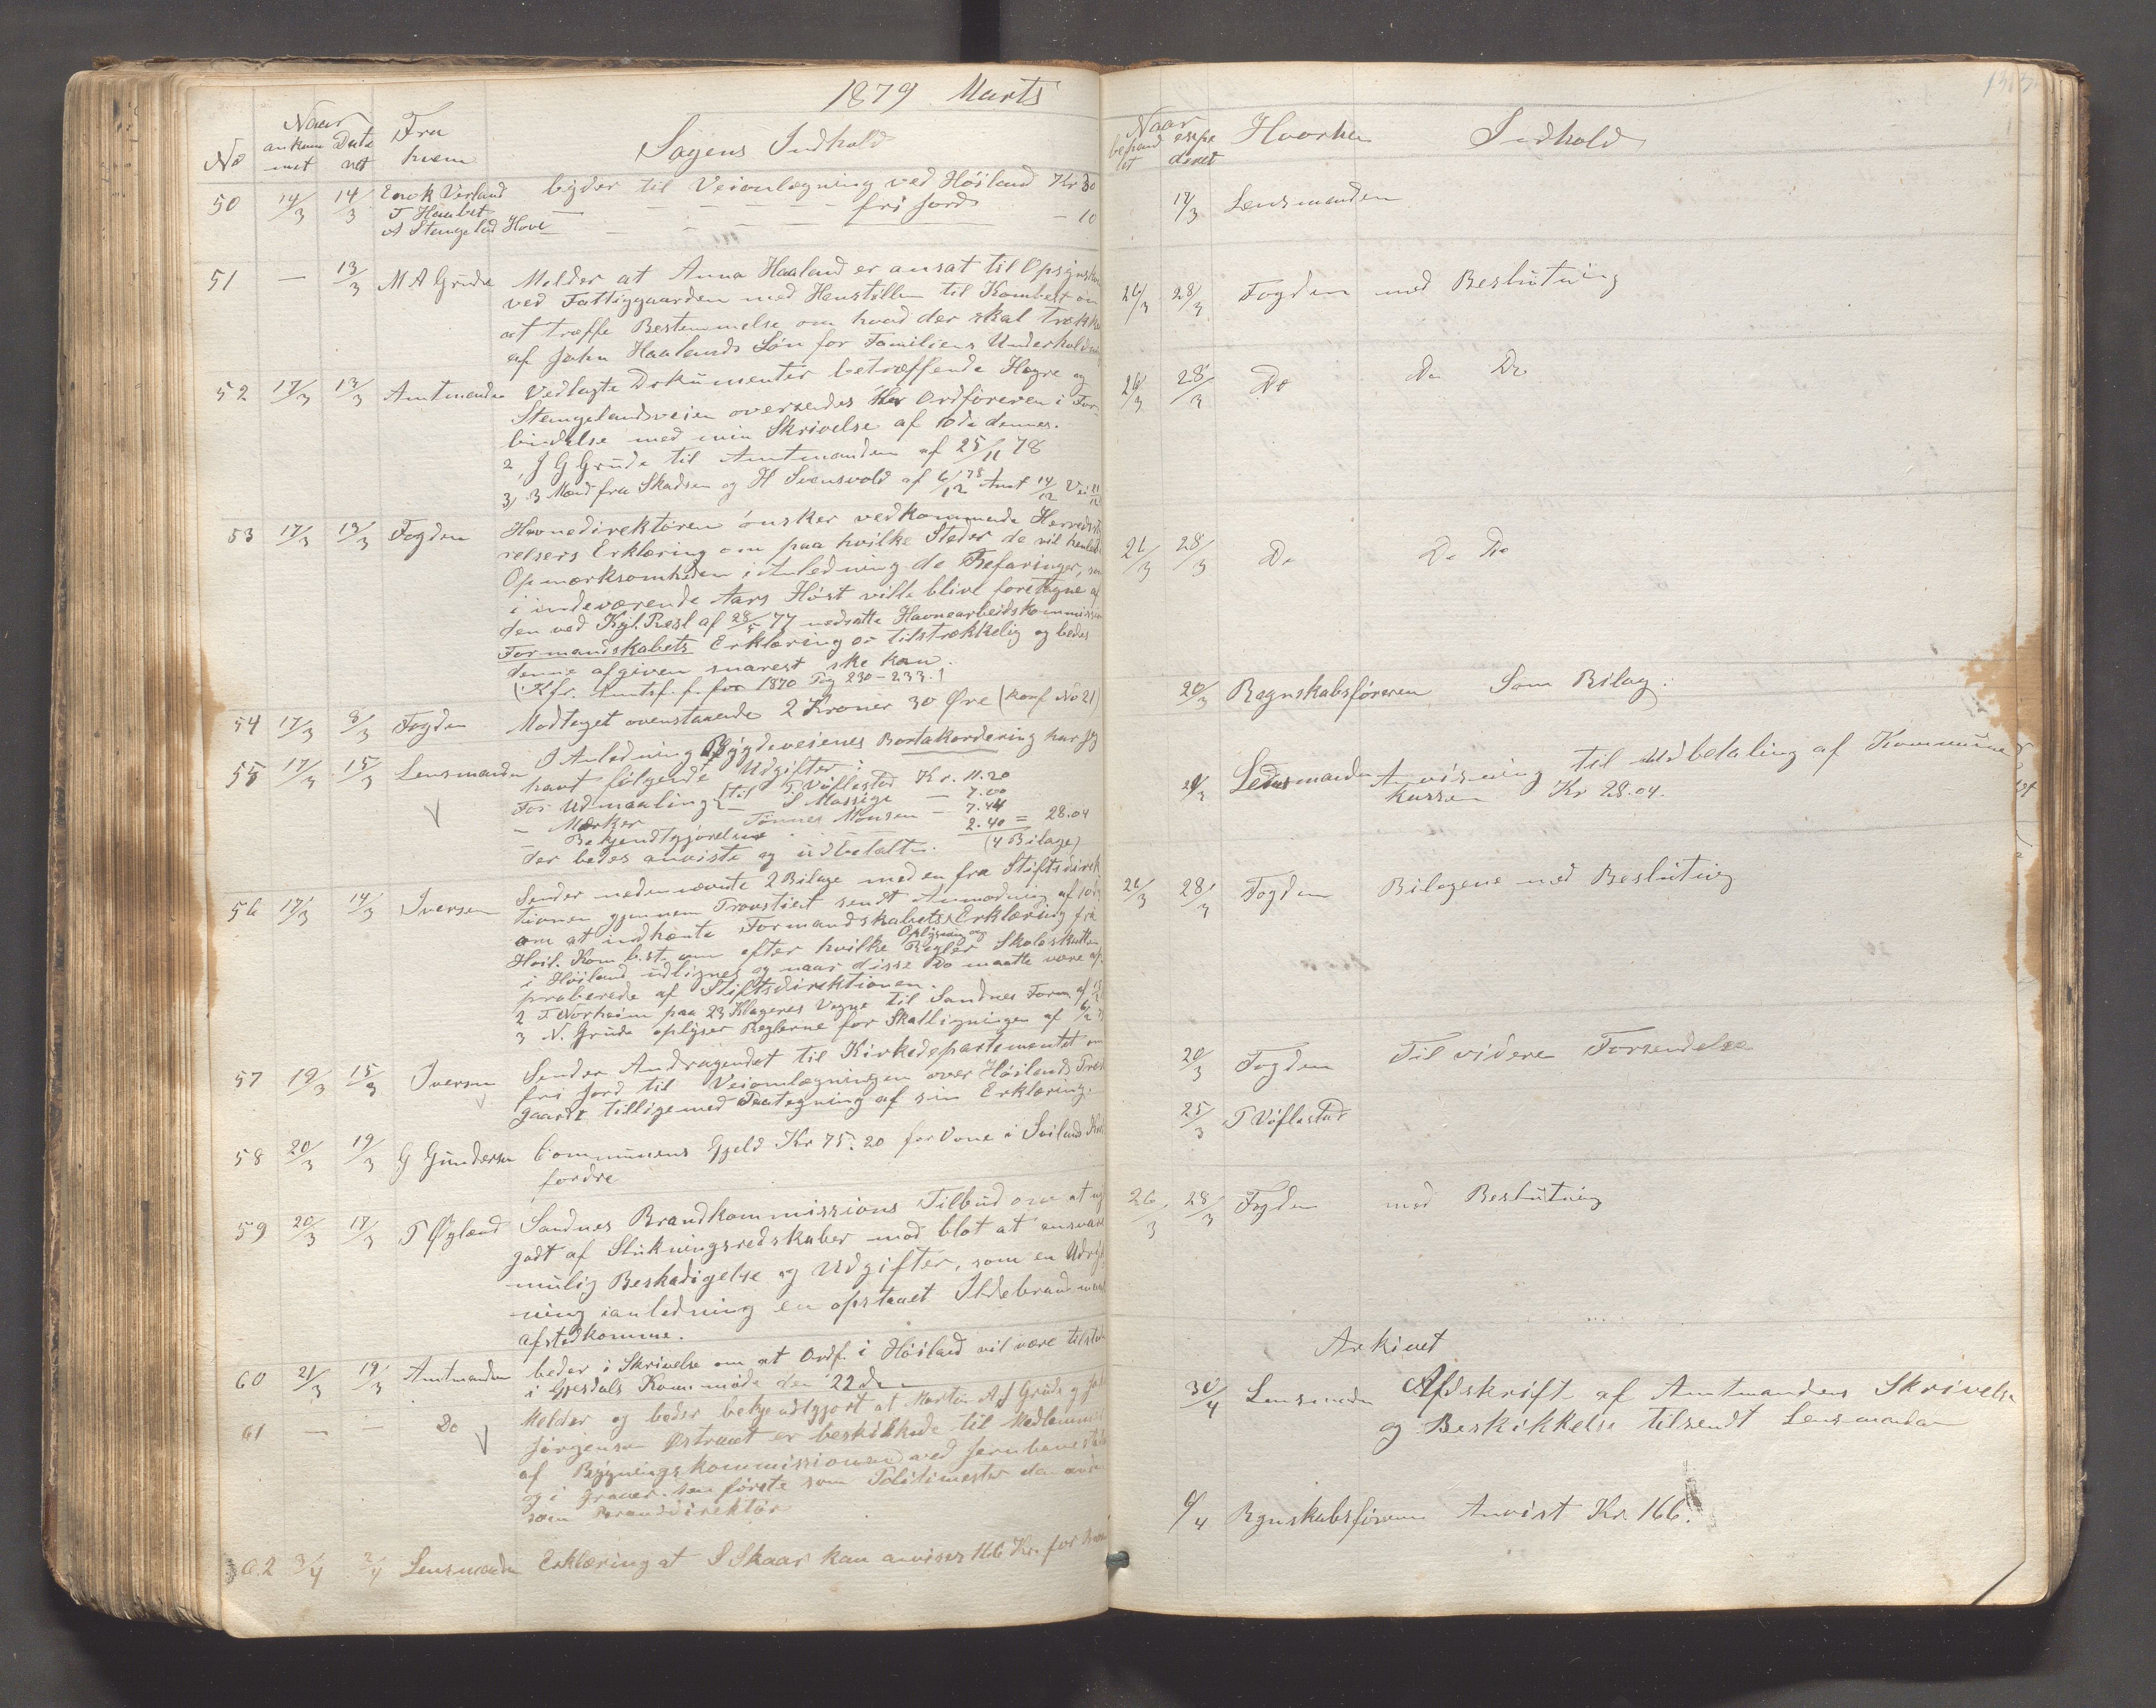 1879 Marts
No
Naar
ankom
met
Date
ret
Fra
hvem
Sagens Indhold
50 14/3 14/3 Enok Verland byder til Veiomlægning ved Höiland Kr 30
T Haabet — — — — fri Jord
A Stangeland Hove — — — — — 10
51 — 13/3 M A Grude Melder at Anna Haaland er ansat til
ved Fattiggaarden med Henstillen til Kombest om
at træffe Bestemmelse om hvad der skal
af John Haalands Lön for Familiens
52 17/3 13/3 Amtmanden Vedlagte Dokumenter betræffende Hogre og
Stangelandsveien oversendes Hr Ordföreren i For-
bindelse med min Skrivelse af 10de dennes.
2, J G Grude til Amtmanden af 25/11 78
3, 3 Mænd fra Skadsem og H Svensvold af 6/12 78 Amt 14/12
53 17/3 13/3 Fogden Havnedirektören önsker vedkommende
relsers Erklæring om paa hvilke Steder de vil
Opmærksomheden i Anledning de Befaringer,
i indeværende Aars Höst ville blive foretagne af
den ved Kgl. Resl af 28/5 77 nedsatte Havnearbeidskommission
Formandskabets Erklæring er tilstrækkelig og bedes
denne afgiven snarest ske kan.
(Kfr. Amtsf. f. for 1870 Pag 230-233.)
54 17/3 8/3 Fogden Modtaget ovenstaaende 2 Kroner 30 Øre (konf No 21)
55 17/3 15/3 Lensmanden I Anledning Bygdeveienes Bortakkordering har jeg
havt fölgende Udgifter:
For Udmaaling til T Vöflestad Kr. 11.20
— Mærker — S Massige — 7.00
— Tönnes Monsen — 7.44
Bekjendtgjörelser — 2.40 = 28.04
der bedes anviste og udbetalte. (4 Bilage)
56 17/3 14/3 Iversen Sender nedennævnte 2 Bilage med en fra
tionen gjennem Provstiet sendt Anmodning af
om at indhente Formandskabets Erklæring fra
Höil. Kom.b.st. om Oplysning og efter hvilke Regler
i Höiland udlignes og naar disse Do maatte være ap-
proberede af Stiftsdirektionen.
2 T Norheim paa 23 Klageres Vegne til Sandnes Form. af
3 N. Grude oplyser Reglerne for Skatligningen af
57 19/3 15/3 Iversen Sender Andragendet til Kirkedepartementet om
fri Jord til Veiomlægningen over Höilands
gaard tilligemed Paategning af sin Erklæring.
58 20/3 19/3 G Gundersen Communens Gjeld Kr 75.20 for Vone i
fordre
59 20/3 17/3 T Øgland Sandnes Brandkommissions Tilbud om at
godt af Slukningsredskaber mod blot at
mulig Beskadigelse og Udgifter, som en
ning ianledning en opstaaet Ildebrand
afstedkomme.
60 21/3 19/3 Amtmanden beder i Skrivelse om at Ordf. i Höiland vil være
i Gjesdals Kommöde den 22de
61 — — Do Melder og beder bekjendtgjort at Martin A Grude og
Jörgensen Østraat er beskikkede til Medlemmer
af Bygningskommissionen ved
og i Graver. den förste som Politimester den anden
som Branddirektör
62 3/4 2/4 Lensmanden Erklæring at S Skaar kan anvises 166 Kr. for
Naar
behand
let
expe
deret
Hvorhen
Indhold
17/3 Lensmanden
26/3 28/3 Fogden med Beslutning
26/3 28/3 Do Do Do
26/3 28/3 Do Do Do
20/3 Regnskabsföreren Som Bilag.
Lensmanden Anvisning til Udbetaling af Kommune
kassen Kr 28.04.
26/3 28/3 Fogden Bilagene med Beslutning
20/3 Fogden Til videre Forsendelse
25/3 T Vöflestad
26/3 28/3 Fogden med Beslutning
Arkivet
30/4 Lensmanden Afdskrift af Amtmandens Skrivelse
og Beskikkelse tilsendt Lensmanden
Rgnskabsföreren Anvist Kr. 166.